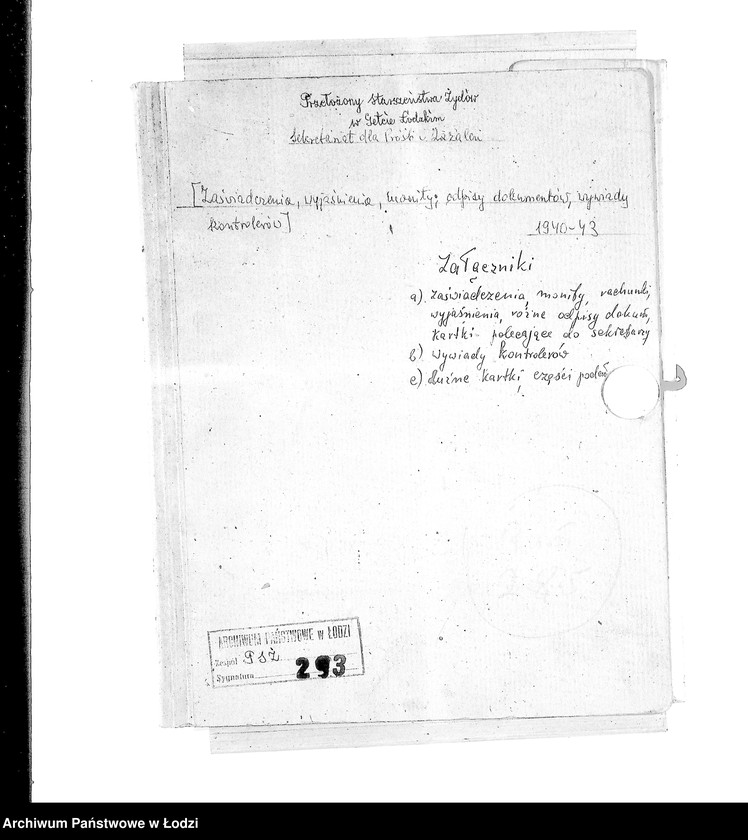 Przełożony Starszeństwa Żydów
w Getcie Łódzkim
Sekretariat dla Próśb i Zażaleń
[Zaświadczenia, wyjaśnienia, monity, odpisy dokumentów, wywiady
kontrolerów]
1940-43
Załączniki
a) zaświadczenia, monity, rachunki,
wyjaśnienia, różne odpisy dokum,
kartki polecające do sekretarzy
b) wywiady kontrolerów
c) luźne kartki, części
ARCHIWUM PAŃSTWOWE w ŁODZI
Zespół PSŻ
Sygnatura 293
Archiwum Państwowe w Łodzi